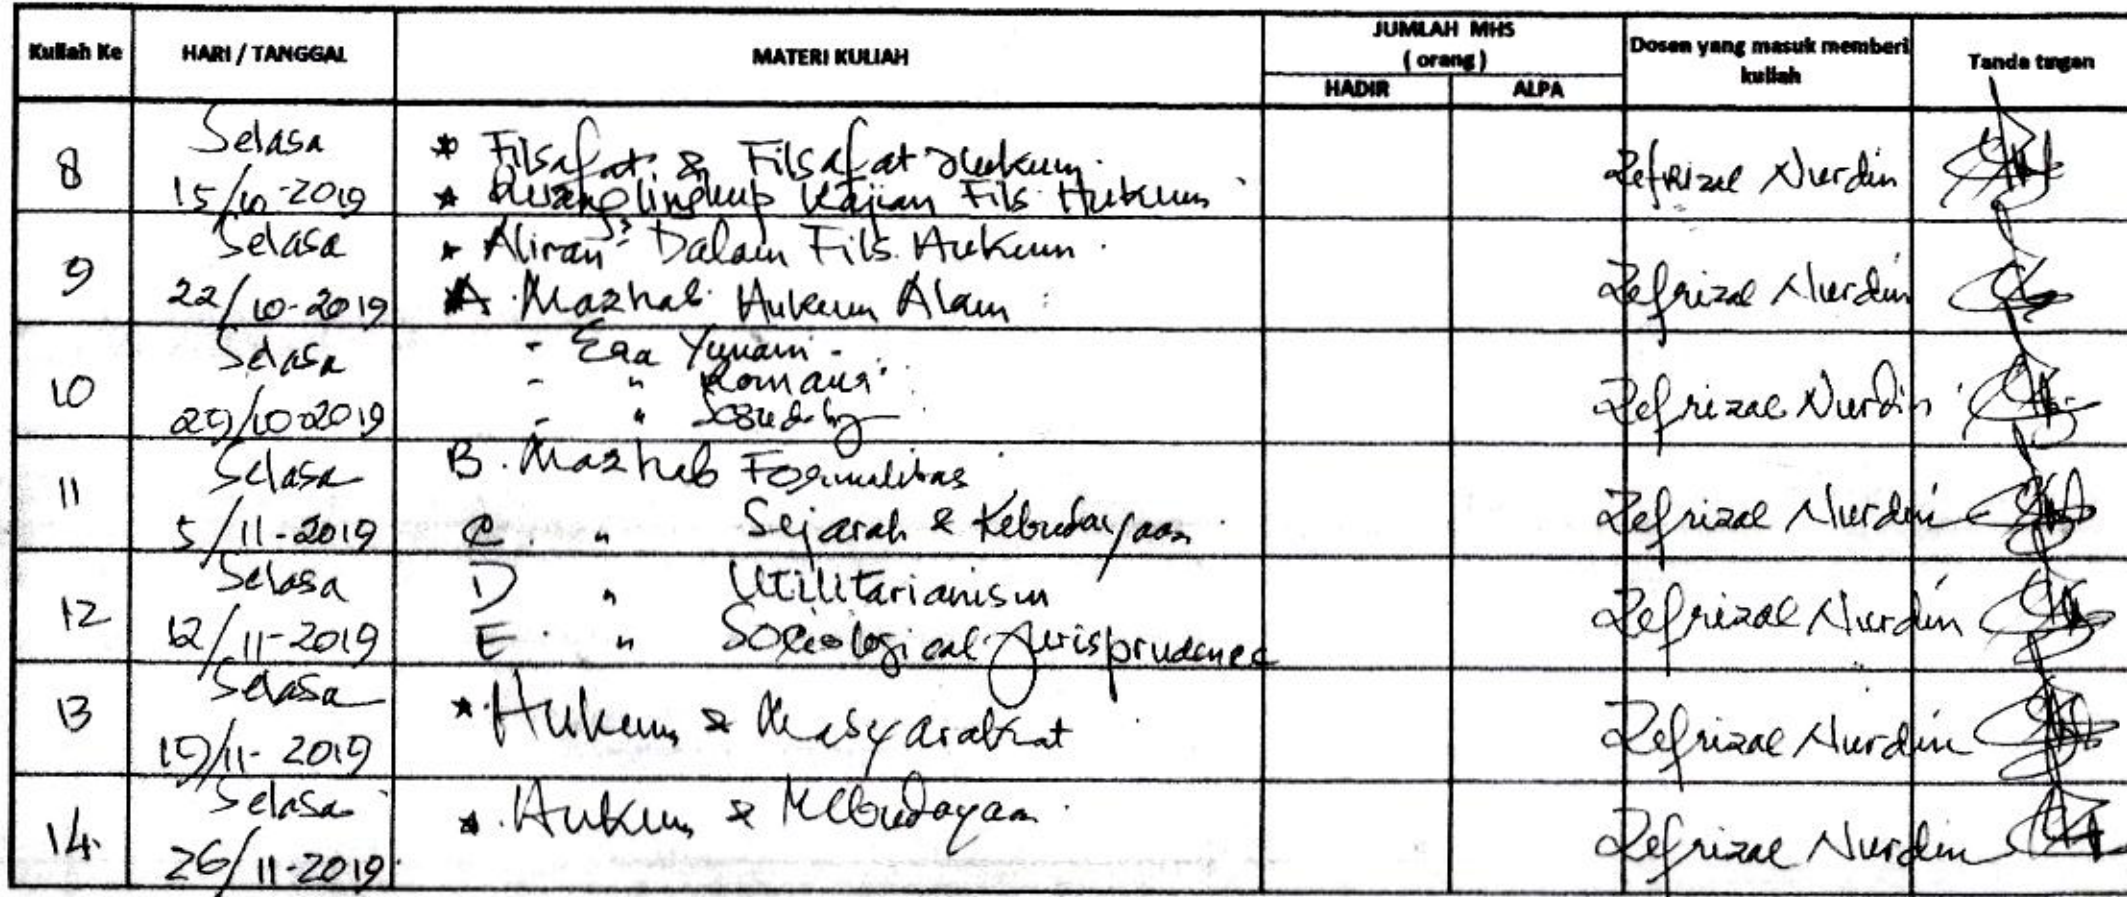 Kuliah Ke HARI / TANGGAL MATERI KULIAH JUMLAH MHS ( orang ) HADIR ALPA Dosen yang masuk memberi kuliah Tanda tangan
8 Selasa 15/10-2019
* Filsafat & Filsafat Hukum.
* Ruang lingkup Kajian Fils Hukum
Zefrizal Nurdin
9 Selasa 22/10-2019
* Aliran² Dalam Fils. Hukum.
A. Mazhab Hukum Alam :
Zefrizal Nurdin
10 Selasa 29/10-2019
- Era Yunani -
- " Romawi
- "
Zefrizal Nurdin
11 Selasa 5/11-2019
B. Mazhab Formalitas
C. " Sejarah & Kebudayaan
Zefrizal Nurdin
12 Selasa 12/11-2019
D " Utilitarianism
E. " Sociological Jurisprudence
Zefrizal Nurdin
13 Selasa 19/11-2019
* Hukum & Masyarakat
Zefrizal Nurdin
14. Selasa 26/11-2019
* Hukum & Kebudayaan.
Zefrizal Nurdin